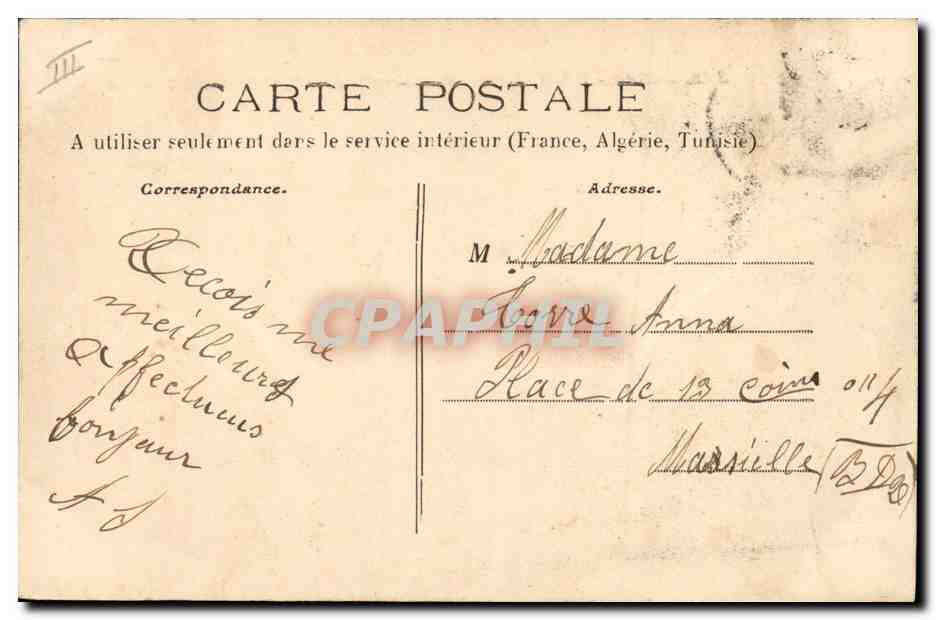 III
CARTE POSTALE
A utiliser seulement dans le service intérieur (France, Algérie, Tunisie)
Correspondance.
Adresse.
Recois me
meilleurs
affectueus
bonjour
A S
M Madame
Horre Anna
Place de 13 Coins n 4
Marsielle (BD
CPAPHIL